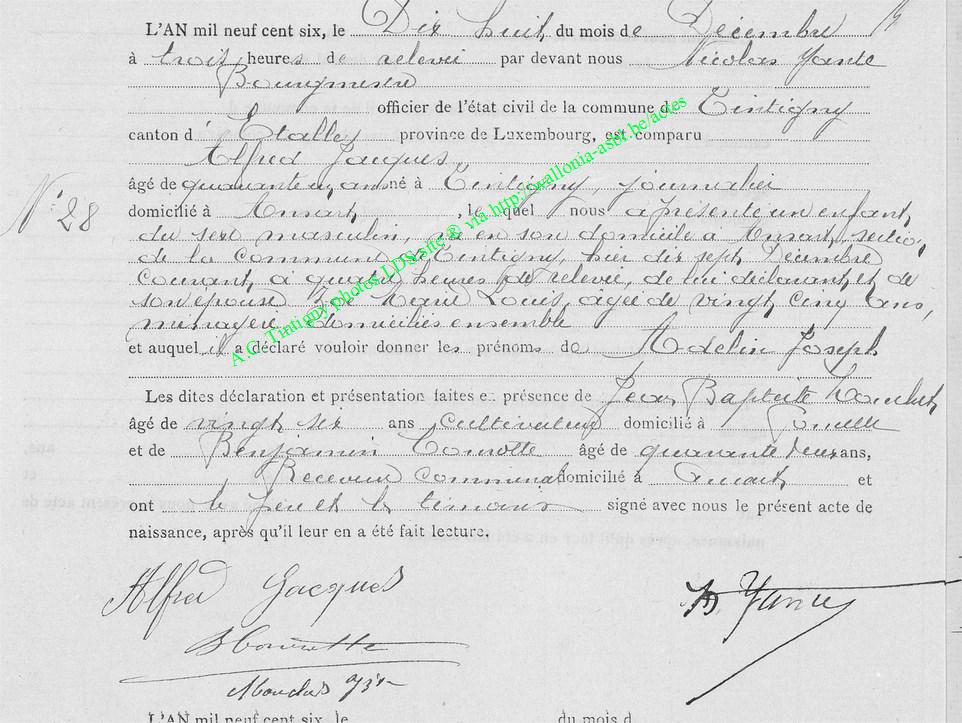 L'AN mil neuf cent six, le Dix huit du mois de Décembre
à trois heures de relevée par devant nous Nicolas Yante
Bourgmestre
officier de l'état civil de la commune de Tintigny
canton d' Etalle, province de Luxembourg, est comparu
Alfred Jacques,
âgé de quarante ans né à Tintigny, journalier
N° 28
domicilié à Ansart, lequel nous a présenté un enfant
du sexe masculin, né en son domicile à Ansart, section
de la commune de Tintigny, hier dix sept Décembre
courant, à quatre heures de relevée, de lui déclarant et de
son épouse Marie Louis, agée de vingt cinq ans,
ménagère domiciliés ensemble
et auquel il a déclaré vouloir donner les prénoms de Adelin Joseph
Les dites déclaration et présentation faites en présence de Jean Baptiste
âgé de vingt six ans, cultivateur domicilié à
et de Benjamin âgé de quarante deux ans,
Receveur communal domicilié à Ansart et
ont le père et les témoins signé avec nous le présent acte de
naissance, après qu'il leur en a été fait lecture.
A.C. Tintigny photos LDS site © via http://wallonia-asbl.be/actes
Alfred Jacques
Yante
L'AN mil neuf cent six, le du mois d